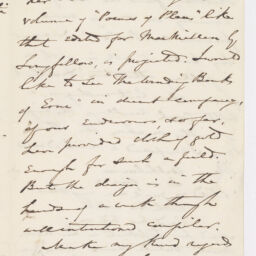 volume of "Poems of Places" like
that edited for MacMillan by
Longfellow, is projected. I would
like to see "The Winding Banks
of Erne" in decent company,
if your endeavours, so far,
have provided clothing
enough for such a field.
But the design is in the
hands of a weak though
well intentioned compiler.
Make my kind regards